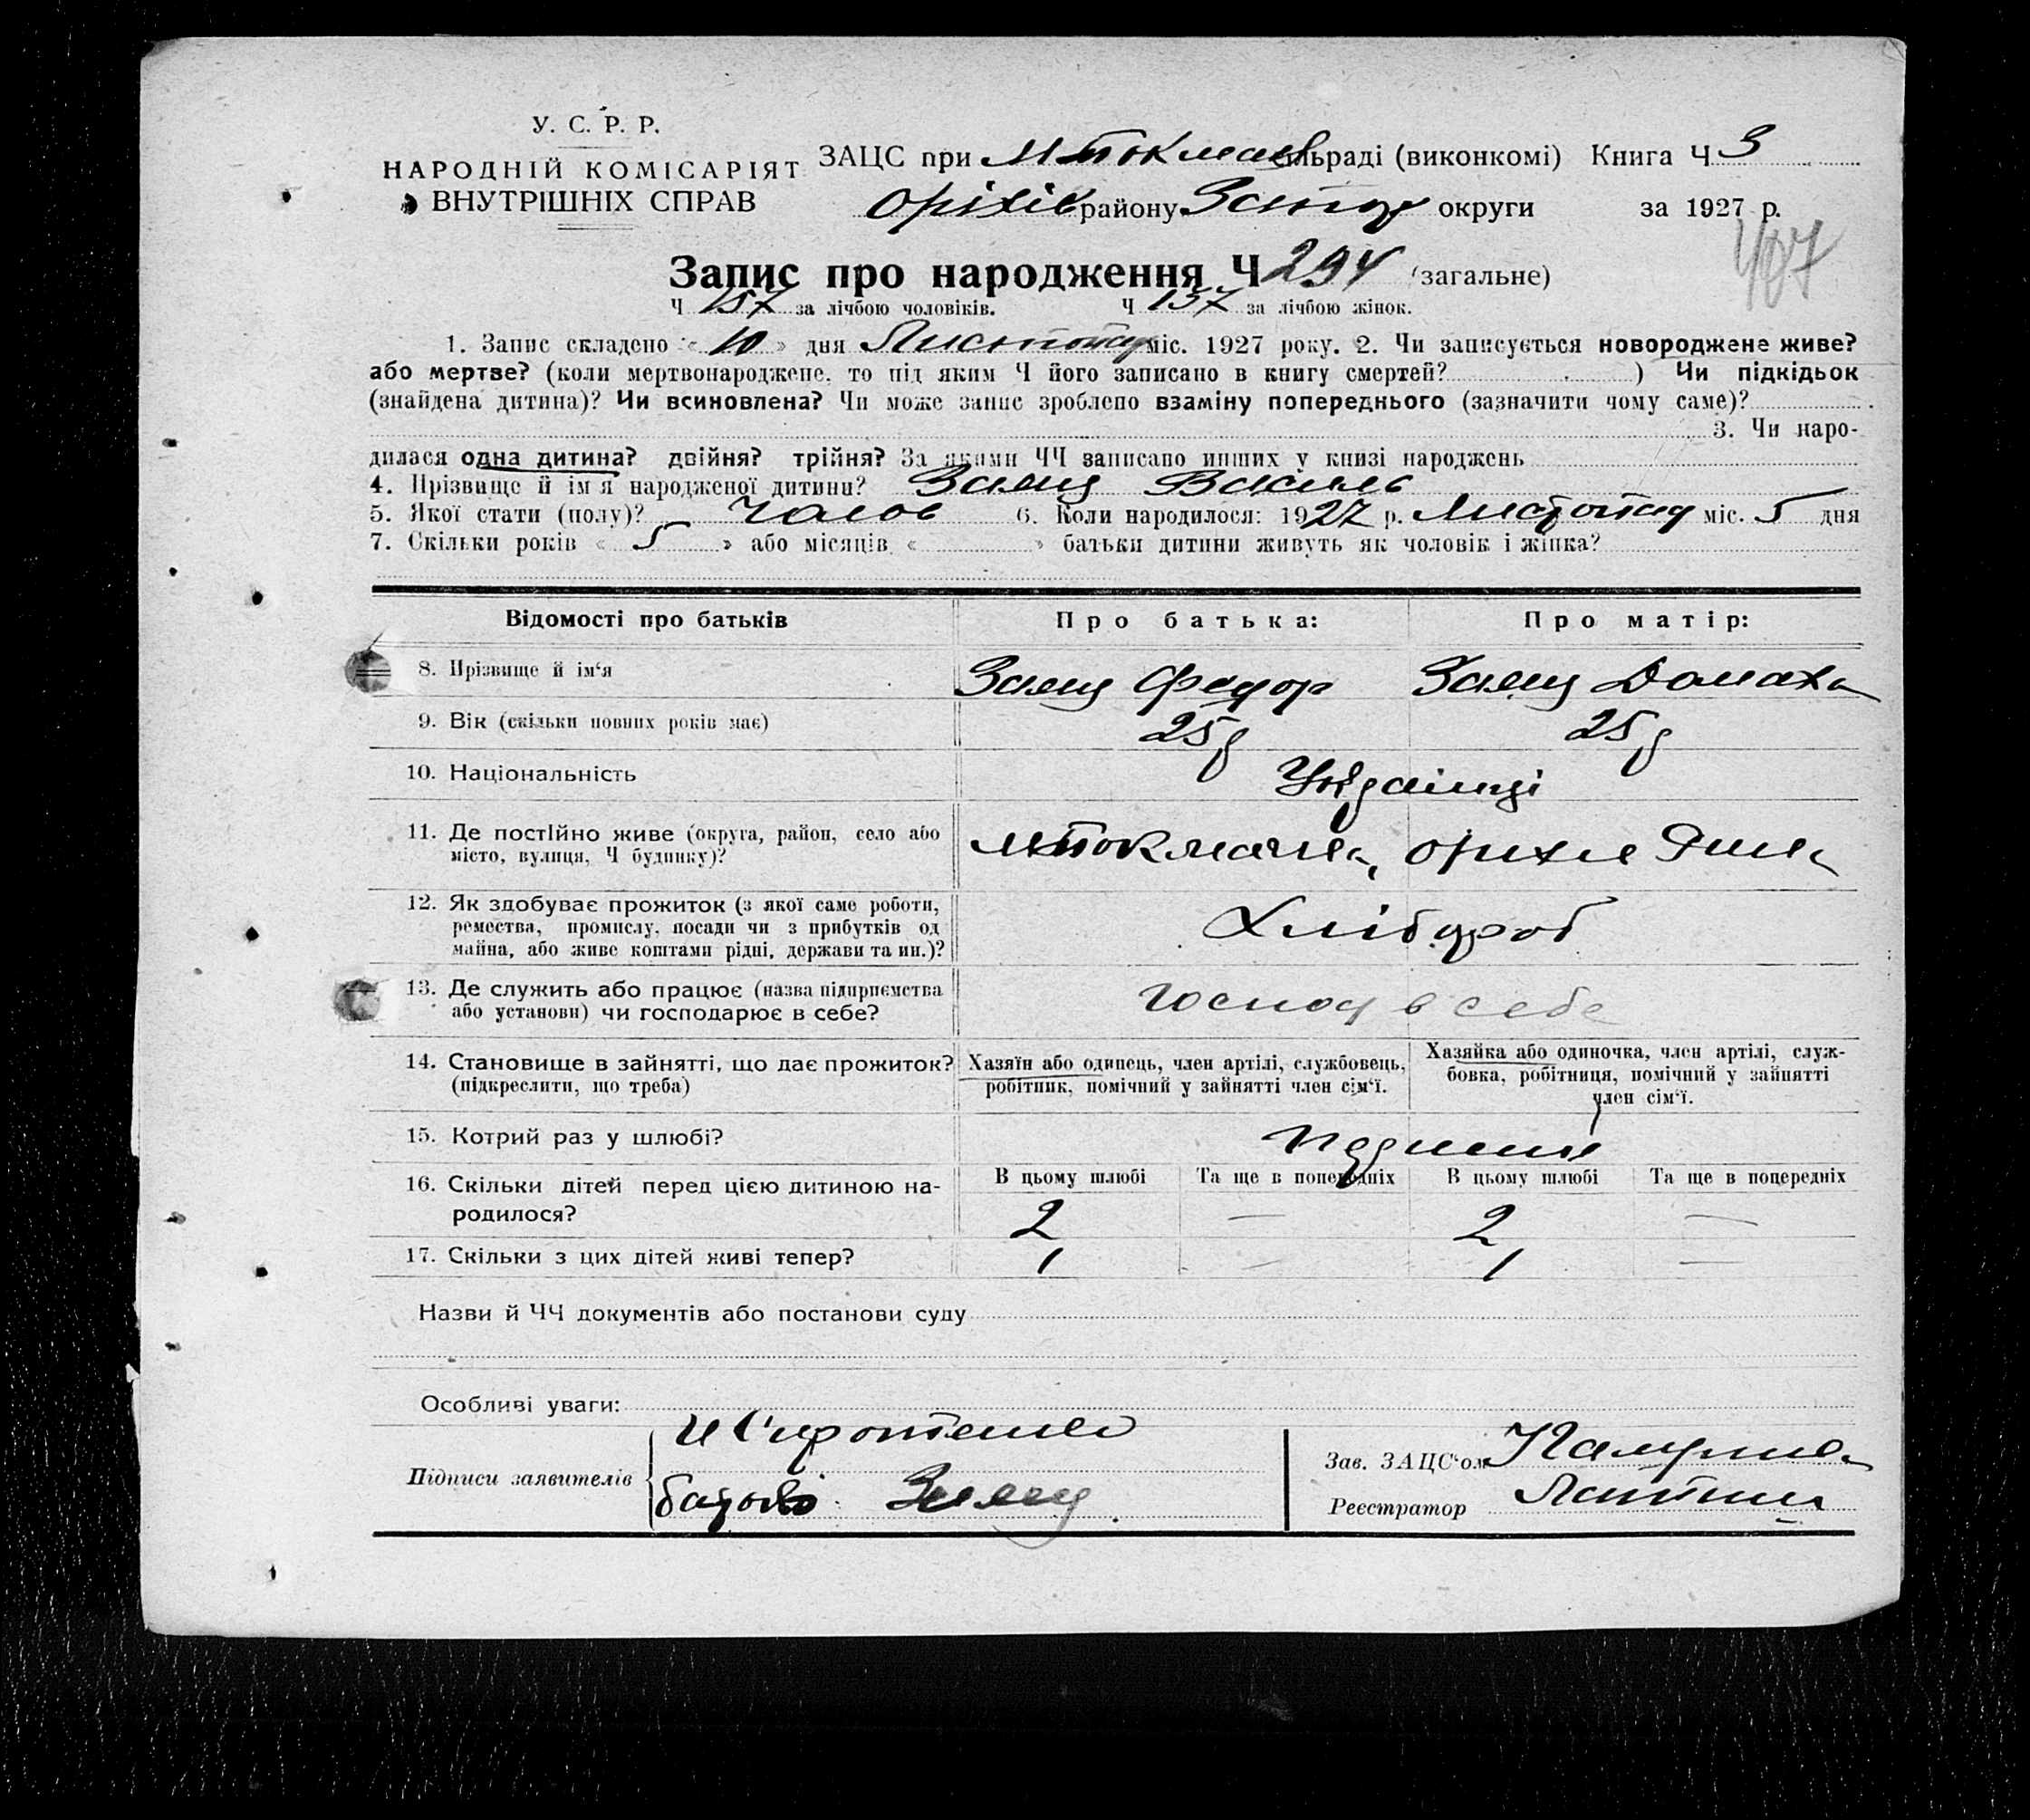 У. С. Р. Р.
НАРОДНІЙ КОМІСАРІЯТ
ВНУТРІШНІХ СПРАВ
ЗАЦС при М Токмач сільраді (виконкомі) Книга Ч 3
Оріхів району Запор округи за 1927 р.
407
Запис про народження Ч 294 (загальне)
Ч 157 за лічбою чоловіків. Ч 137 за лічбою жінок.
1. Запис складено « 10 » дня Листопад міс. 1927 року. 2. Чи записується новороджене живе?
або мертве? (коли мертвонароджене, то під яким Ч його записано в книгу смертей? ) Чи підкідьок
(знайдена дитина)? Чи всиновлена? Чи може запис зроблено взаміну попереднього (зазначити чому саме)?
3. Чи наро-
дилася одна дитина? двійня? трійня? За якими ЧЧ записано инших у книзі народжень
4. Прізвище й ім'я народженої дитини? Заяць Василь
5. Якої стати (полу)? чолов 6. Коли народилося: 1927 р. Листопад міс. 5 дня
7. Скільки років « 5 » або місяців « » батьки дитини живуть як чоловік і жінка?
Відомості про батьків Про батька: Про матір:
8. Прізвище й ім'я Заяць Федор Заяць Домаха
9. Вік (скільки повних років має) 25 р 25 р
10. Національність Українці
11. Де постійно живе (округа, район, село або
місто, вулиця, Ч будинку)? М Токмачка, Оріхів
12. Як здобуває прожиток (з якої саме роботи,
ремества, промислу, посади чи з прибутків од
майна, або живе коштами рідні, держави та ин.)? Хлібороб
13. Де служить або працює (назва підприємства
або установи) чи господарює в себе? Господ в себе
14. Становище в зайнятті, що дає прожиток?
(підкреслити, що треба)
Хазяїн або одинець, член артілі, службовець,
робітник, помічний у зайнятті член сім'ї.
Хазяйка або одиночка, член артілі, служ-
бовка, робітниця, помічний у зайнятті
член сім'ї.
15. Котрий раз у шлюбі? Перший
В цьому шлюбі Та ще в попередніх В цьому шлюбі Та ще в попередніх
16. Скільки дітей перед цією дитиною на-
родилося? 2 — 2 —
17. Скільки з цих дітей живі тепер? 1 — 1 —
Назви й ЧЧ документів або постанови суду
Особливі уваги:
Підписи заявителів
Заяць
Зав. ЗАЦС'ом
Реєстратор